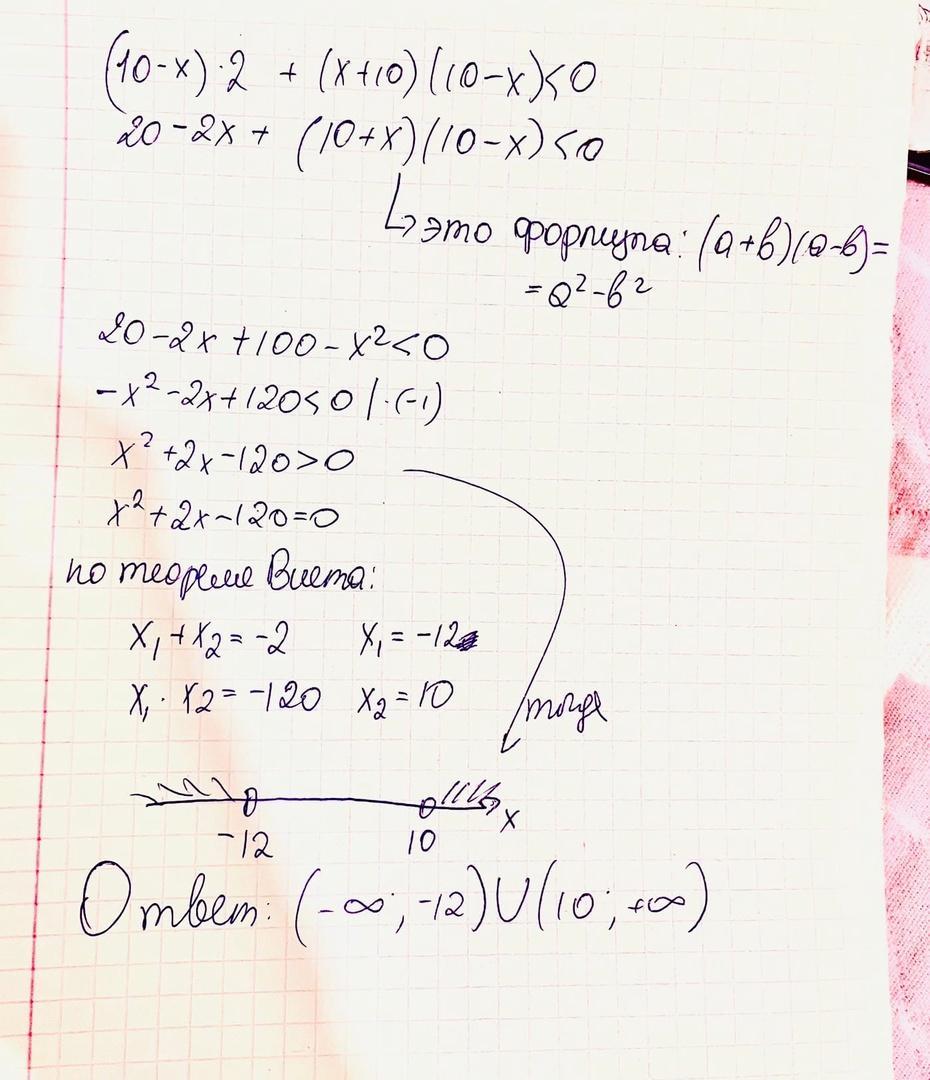 (10-x)·2 + (x+10)(10-x)<0
20-2x+ (10+x)(10-x)<0
↳это формула: (a+b)(a-b)=
=a²-b²
20-2x+100-x²<0
-x²-2x+120<0 |·(-1)
x²+2x-120>0
x²+2x-120=0
по теореме Виета:
x₁+x₂=-2 x₁=-12
x₁·x₂=-120 x₂=10
тогда
-12 10 x
Ответ: (-∞;-12)∪(10;+∞)